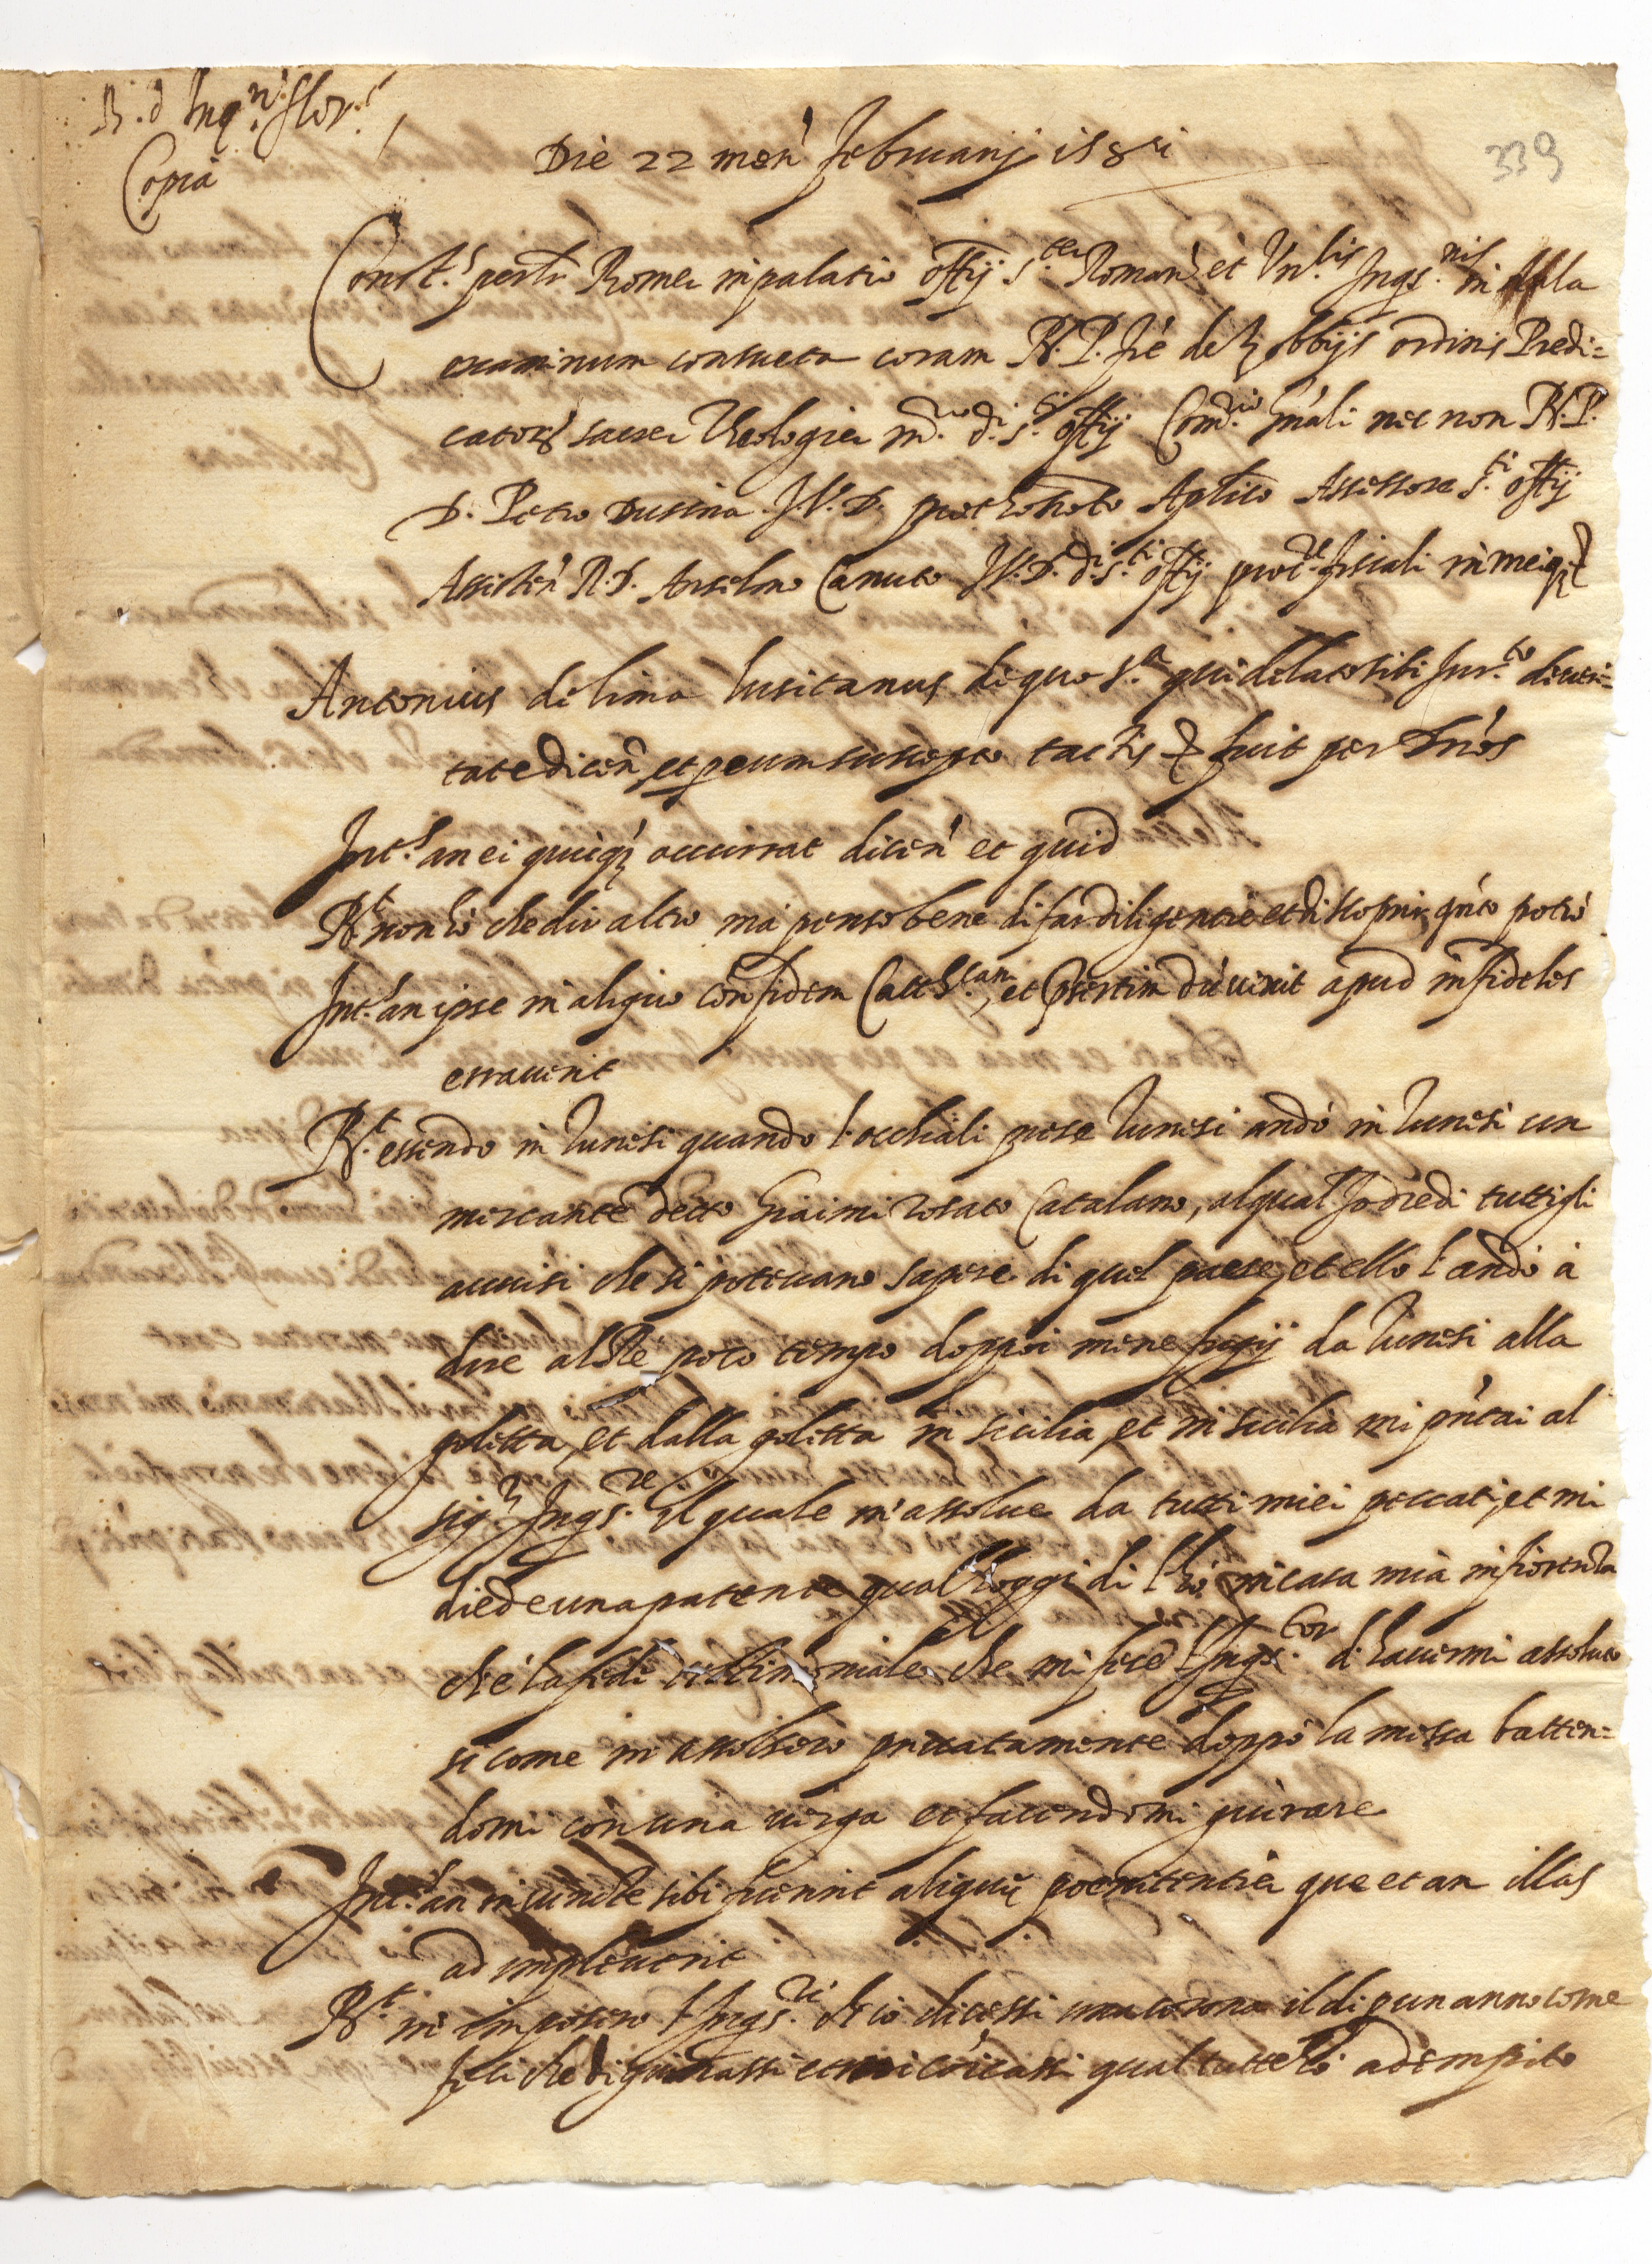 R. d Inq.ri flor.
Copia
339
Die 22 men' februarij 1581
Const.s person.r Rome in palatio offij S.tei Roman' et Vn.lis Inqs.nis in Aula
examinum consueta coram R. P. fre de Zobbijs ordinis Predi=
cator sacrea Theologiea m.ro d.i S.ti offij Com.rio gn'ali nec non R. P.
D. Petro Dusina J. V. D. prothonoto Aplico Assessore S.ti offij
Assisten' R. D. Anselmo Canuto J. V. D. d.i S.ti offij proc.re fiscali in meiq
Antonius de lima lusitanus de quo s.a qui delato sibi Jur.to de veri=
tate dicen' et per eum suscepto tactis & fuit per D'nos
Int.s an ei quicq' occurrat dicen' et quid
R.t non ho che dir altro ma penso bene di far diligentie et di scoprir q'nto potrò
Int.s an ipse in aliquo con fidem Catt.cam, et presertim dū vixit apud infideles
erraverit
R.t essendo in Tunesi quando l'occhiali prese Tunesi andò in Tunesi un
mercante detto Giaimi rosato Catalano, al qual Io diedi tutti gli
avvisi che si potevano sapere di quel paese, et ello l'andò à
dire al Re poco tempo doppoi me ne fugij da Tunesi alla
goletta, et dalla goletta in Sicilia, et in sicilia mi p'ntai al
sig.r Inqs.re il quale m'assolue da tutti miei peccati, et mi
diede una patente qual hoggi di l'ho in casa mia in fiorenza
che è la fede testimoniale che mi fece l'Inqs.tor d'havermi assoluto
si come m'assolsero privatamente doppò la messa batten=
domi con una verga et facendomi giurare
Int.s an iniuncte sibi fuerint aliquę poenitentiea que et an illas
ad impleverit
R.t m'imposero l'Inqs.ri ch'io dicessi una corona il di p un anno come
feci che digiunassi et mi co'icassi qual tutte ho adempito